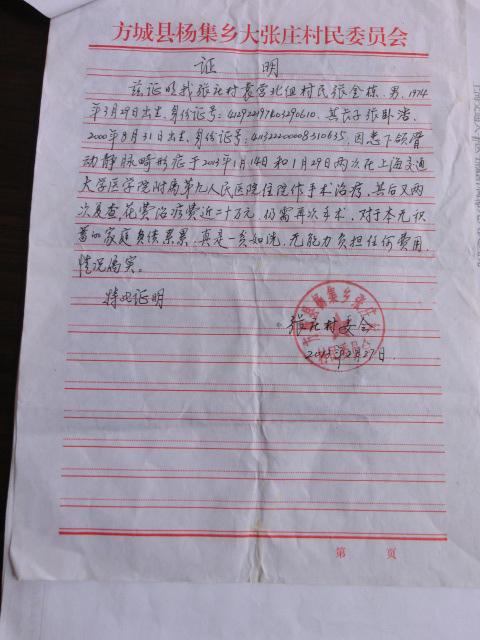 方城县杨集乡大张庄村民委员会
证 明
兹证明我张庄村袁营北组村民张金栋，男，1974
年3月29日出生，身份证号：412922197403290610，其长子张卧浩
2000年8月31日出生，身份证号：411322200008310635，因患下颌骨
动静脉畸形症于2013年1月14日和1月29日两次在上海交通
大学医学院附属第九人民医院住院作手术治疗，其后又两
次复查，花费治疗费近二十万元，仍需再次手术，对于本无积
蓄的家庭负债累累，真是一贫如洗，无能力负担任何费用，
情况属实。
特此证明
张庄村委会
年12月27日.
第 页